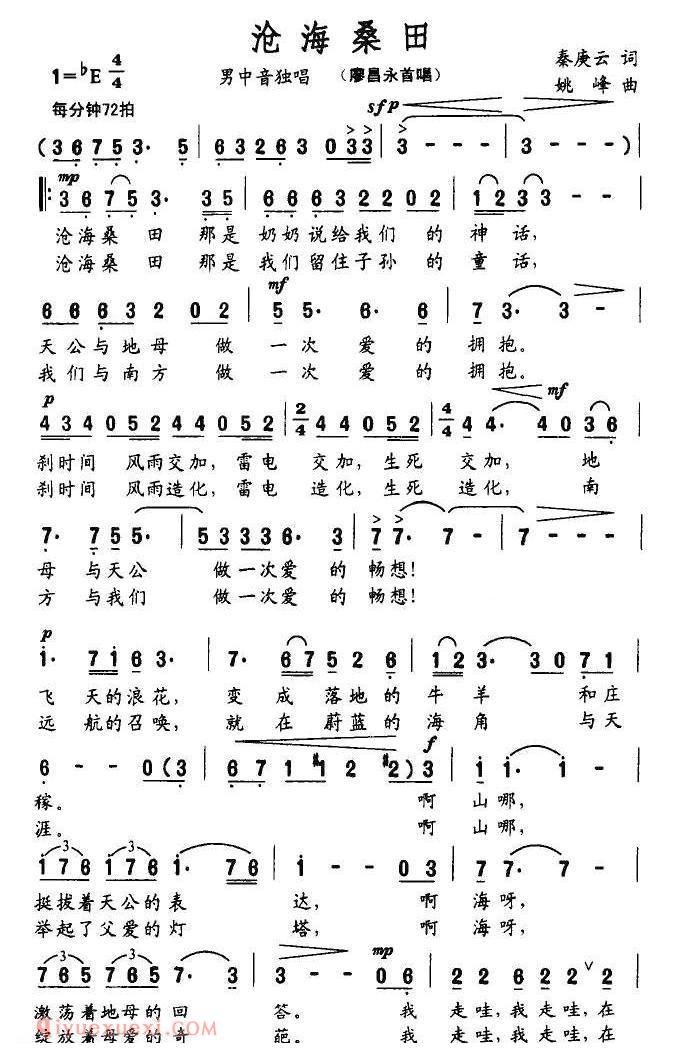 沧海桑田
1=♭E 4/4
男中音独唱 (廖昌永首唱)
秦庚云 词
姚峰 曲
每分钟72拍
sfp
(3 6 7 5 3· 5 | 6 3 2 6 3 0 3 3 | 3 - - - | 3 - - - )
mp
‖: 3 6 7 5 3· 3 5 | 6 6 6 6 3 2 2 0 2 | 1 2 3 3 - - |
沧海桑田 那是 奶奶说给我们 的 神话,
沧海桑田 那是 我们留住子孙 的 童话,
mf
6 6 6 3 2 0 2 | 5 5· 6· 6 | 7 3· 3 - |
天公与地母 做 一次 爱 的 拥抱。
我们与南方 做 一次 爱 的 拥抱。
p mf
4 3 4 0 5 2 4 4 0 5 2 | 2/4 4 4 0 5 2 | 4/4 4 4· 4 0 3 6 |
刹时间 风雨交加, 雷电 交加, 生死 交加, 地
刹时间 风雨造化, 雷电 造化, 生死 造化, 南
7· 7 5 5· | 5 3 3 3 6· 3 | 7 7· 7 - | 7 - - - |
母 与天公 做一次爱 的 畅想!
方 与我们 做一次爱 的 畅想!
p
1· 7 1 6 3· | 7· 6 7 5 2 6 | 1 2 3· 3 0 7 1 |
飞 天的浪花, 变 成 落地的 牛 羊 和庄
远 航的召唤, 就 在 蔚蓝的 海 角 与天
f
6 - - 0 (3 | 6 7 1 #1 2 #2) 3 | 1 1· 1 - |
稼。 啊 山哪,
涯。 啊 山哪,
3 3
1 7 6 1 7 6 1· 7 6 | 1 - - 0 3 | 7 7· 7 - |
挺拔着天公的表 达, 啊 海呀,
举起了父爱的灯 塔, 啊 海呀,
3 3 mp
7 6 5 7 6 5 7· 3 | 3 - - 0 6 | 2 2 6 2 2 6 ∨ 2 |
激荡着地母的回 答。 我 走哇,我走哇,在
绽放着母爱的奇 葩。 我 走哇,我走哇,在
iyuexuexi.com